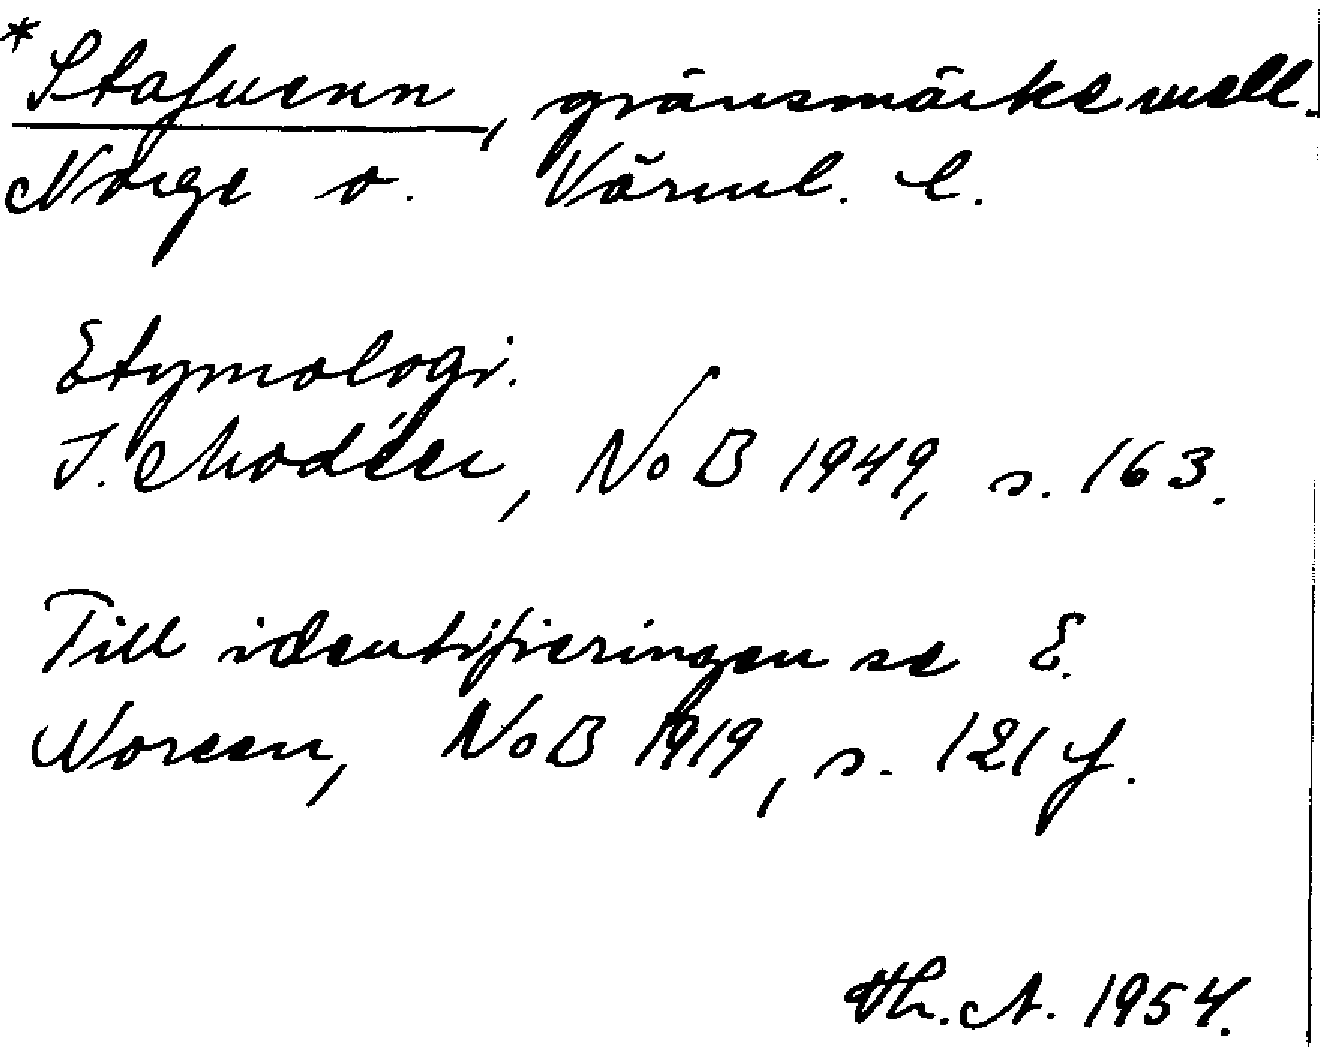 *Stafuenn, gränsmärke mell.
Norge o. Värml. l.
Etymologi.
I. Modéer, NoB 1949, s. 163.
Till identifieringen se E.
Noreen, NoB 1919, s. 121 f.
Th. A. 1954.